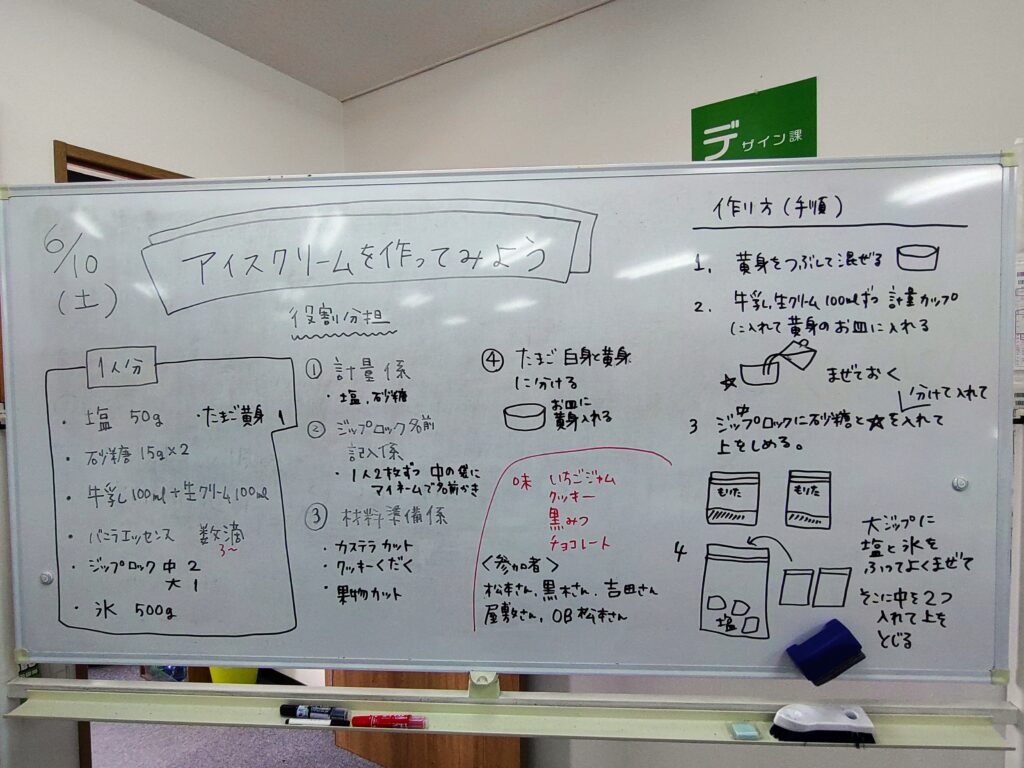 デザイン課
6/10
(土)
アイスクリームを作ってみよう
1人分
・塩 50g ・たまご黄身 1
・砂糖 15g×2
・牛乳 100ml+生クリーム 100ml
・バニラエッセンス 数滴
3～
・ジップロック 中 2
大 1
・氷 500g
役割分担
① 計量係
・塩、砂糖
② ジップロック名前
記入係
・1人2枚ずつ 中の袋に
マイネームで名前かき
③ 材料準備係
・カステラ カット
・クッキーくだく
・果物カット
④ たまご 白身と黄身
に分ける
お皿に
黄身入れる
味 いちごジャム
クッキー
黒みつ
チョコレート
<参加者>
松本さん、黒木さん、吉田さん
屋敷さん、OB松本さん
作り方(手順)
1. 黄身をつぶして混ぜる
2. 牛乳、生クリーム 100mlずつ 計量カップ
に入れて 黄身のお皿に入れる
☆
まぜておく
分けて入れて
3 ジップロック中に砂糖と☆を入れて
上をしめる。
もりた
もりた
4
塩
大ジップに
塩と氷を
ふってよくまぜて
そこに中を2つ
入れて上を
とじる